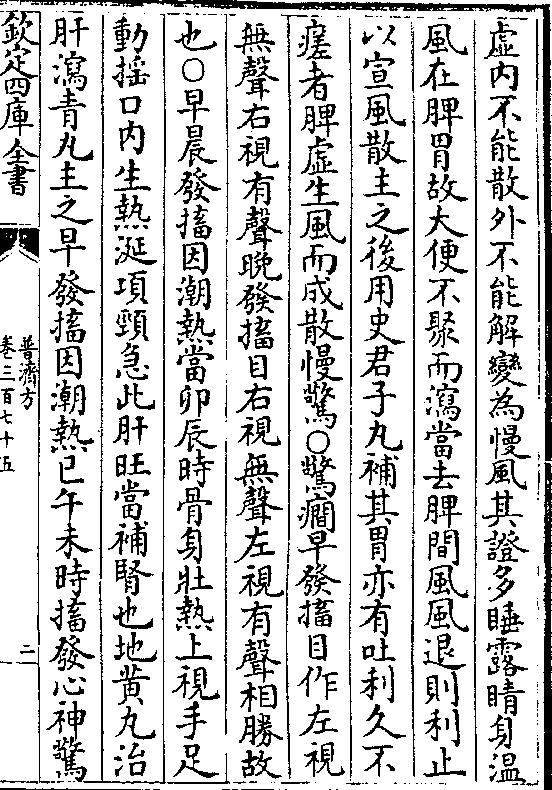 虚内不能散外不能解變為慢風其證多睡露睛身温
風在脾胃故大便不聚而瀉當去脾間風風退則利止
以宣風散主之後用史君子丸補其胃亦有吐利久不
瘥者脾虚生風而成散慢驚○驚癎早發搐目作左視
無聲右視有聲晩發搐目右視無聲左視有聲相勝故
也○早晨發搐因潮熱當卯辰時骨身壯熱上視手足
動揺口内生熱涎項頸急此肝旺當補腎也地黄丸治
肝瀉青丸主之早發搐因潮熱已午未時搐發心神驚
欽定四庫全書
普濟方
卷三百七十五
二